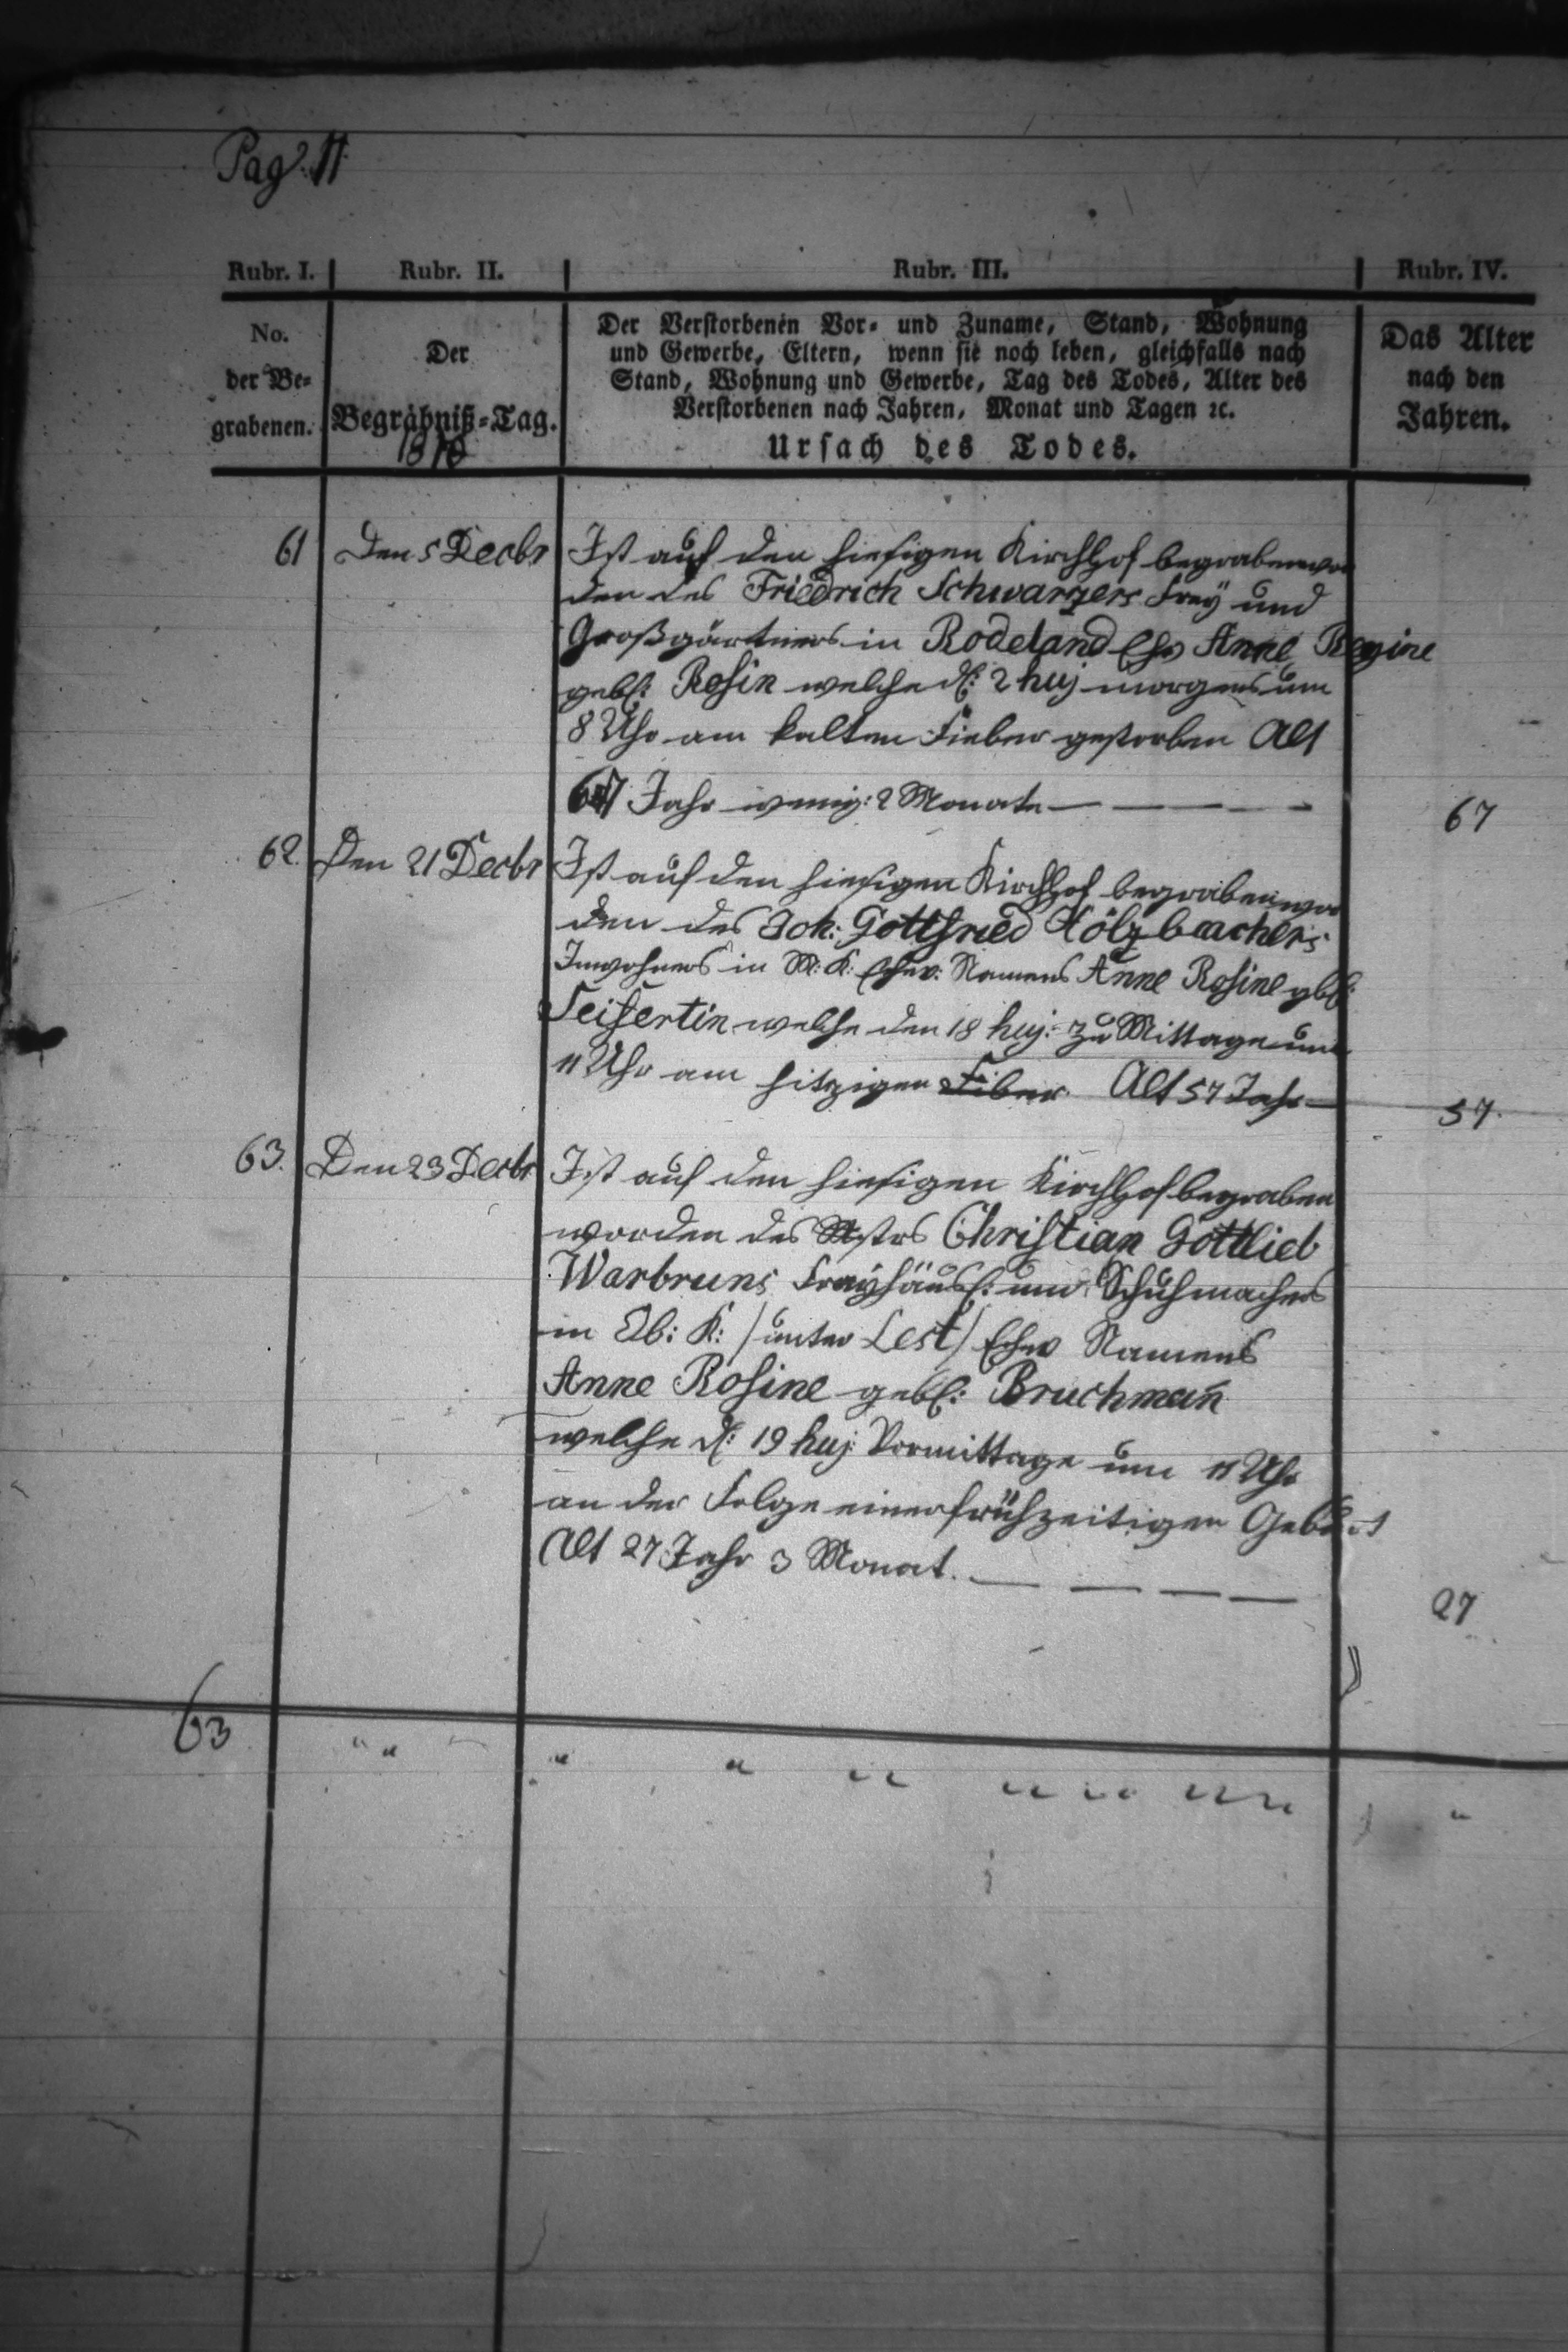 Pag. 11
Rubr. I. Rubr. II. Rubr. III. Rubr. IV.
No.
der Be-
grabenen.
Der
Begräbniß-Tag.
1810
Der Verstorbenen Vor- und Zuname, Stand, Wohnung
und Gewerbe, Eltern, wenn sie noch leben, gleichfalls nach
Stand, Wohnung und Gewerbe, Tag des Todes, Alter des
Verstorbenen nach Jahren, Monat und Tagen ꝛc.
Ursach des Todes.
Das Alter
nach den
Jahren.
61 Den 5 Decbr Ist auf den hiesigen Kirchhof begraben wor
den des Friedrich Schwarzers Freÿ und
Großgärtners in Rodeland Ehw Anne Regine
gebl: Rosin welche d: 2 huj morgens um
8 Uhr am kalten Fieber gestorben Alt
67 Jahr wenig: 2 Monate 67
62. Den 21 Decbr Ist auf den hiesigen Kirchhof begraben wor
den des Joh: Gottfried Hölzbechers
Inwohners in M: K: Ehew: Namens Anne Rosine gebl:
Seifertin welche den 18 huj: zu Mittage um
11 Uhr am hitzigen Fiber Alt 57 Jahr 57.
63. Den 23 Decbr Ist auf den hiesigen Kirchhof begraben
worden des Mstrs Christian Gottlieb
Warbruns Freyhäusl: und Schuhmachers
in Ob: K: /unter Lest/ Ehew Namens
Anne Rosine gebl: Bruchman̅
welche d: 19 huj: Vormittage um 11 Uhr
an der Folge einer frühzeitigen Geburt
Alt 27 Jahr 3 Monat. 27
63